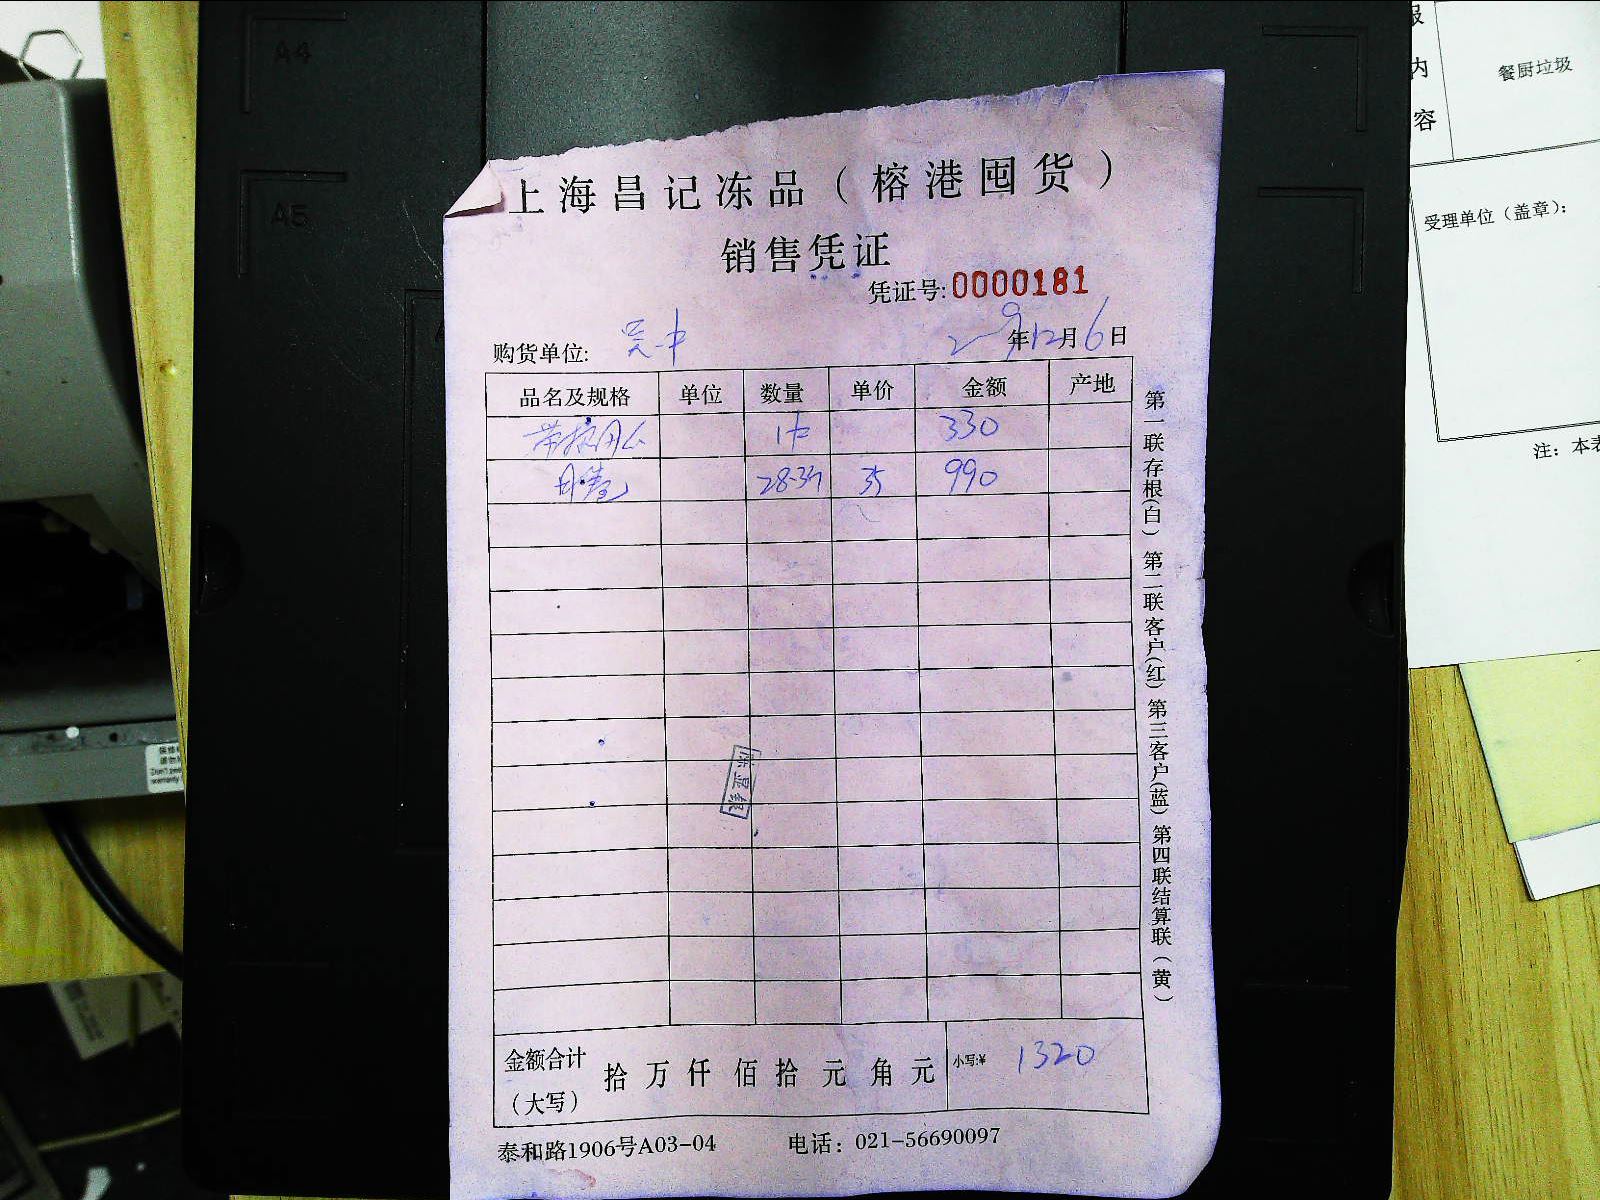 A4
A5
上海昌记冻品（榕港囤货）
销售凭证
凭证号:0000181
购货单位: 吴中
年12月6日
品名及规格 单位 数量 单价 金额 产地
330
28.3 35 990
金额合计
（大写）
拾 万 仟 佰 拾 元 角 元
小写:¥ 1320
泰和路1906号A03-04 电话：021-56690097
第一联存根(白) 第二联客户(红) 第三客户(蓝) 第四联结算联(黄)
内
容
餐厨垃圾
受理单位（盖章）：
注：本表